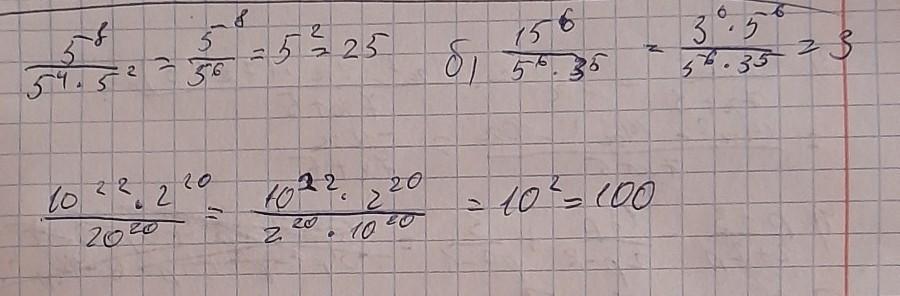 5^8/(5^4 · 5^2) = 5^8/5^6 = 5^2 = 25   б) 15^6/(5^6 · 3^5) = (3^6 · 5^6)/(5^6 · 3^5) = 3
(10^22 · 2^20)/20^20 = (10^22 · 2^20)/(2^20 · 10^20) = 10^2 = 100